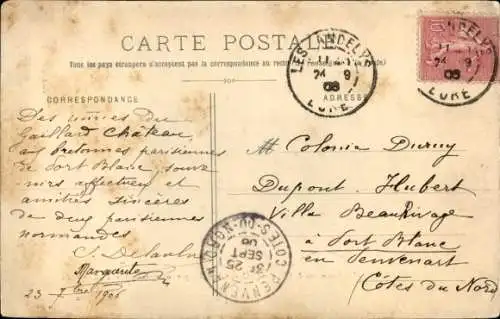 CARTE POSTALE
Tous les pays étrangers n'acceptent pas la correspondance au recto
CORRESPONDANCE
ADRESSE
Des ruines du
Gaillard Château
aux bretonnes parisiennes
de Port Blanc souve
nirs affectueux et
amitiés sincères
de deux parisiennes
normandes
S. Delaulne
23 7bre 1906
Mr Colonia Duruy
Dupont-Hubert
Villa BeauRivage
à Port Blanc
en Penvenan
(Côtes du Nord)
LES ANDELYS
24 9
06
EURE
PENVENAN
25
SEPT
06
COTES-DU-NORD